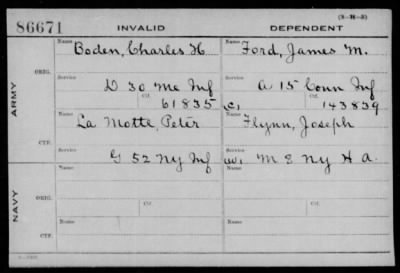 (3-H-3)
86671 INVALID DEPENDENT
Name Boden, Charles H Name Ford, James M.
ORIG.
Service D 30 Me Inf Service A 15 Conn Inf
Ctf. 61835 C, Ctf. 143839
ARMY
Name La Motte, Peter Name Flynn, Joseph
CTF.
Service G 52 NY Inf W, Service M 8 NY H A.
Name Name
ORIG.
Service Ctf. Service Ctf.
NAVY
Name Name
CTF.
Service Service